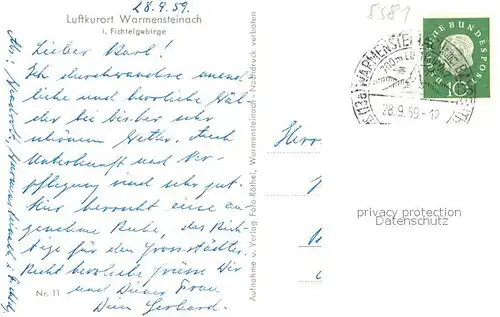 28.9.59.
5581
Luftkurort Warmensteinach
i. Fichtelgebirge
Lieber Karl!
Ich durchwandre unend-
liche und herrliche Wäl-
der bei bisher sehr
schönem Wetter. Auch
Unterkunft und Ver-
pflegung sind sehr gut.
Hier herrscht eine an-
genehme Ruhe, das Rich-
tige für den Grossstädter.
Recht herzliche Grüsse Dir
und Deiner Frau
Dein Gerhard.
Nr. 11
Aufnahme u. Verlag Foto-Böthel, Warmensteinach - Nachdruck verboten
Herrn
DEUTSCHE BUNDESPOST
10
(13a) WARMENSTEINACH
28.9.59-12
privacy protection
Datenschutz